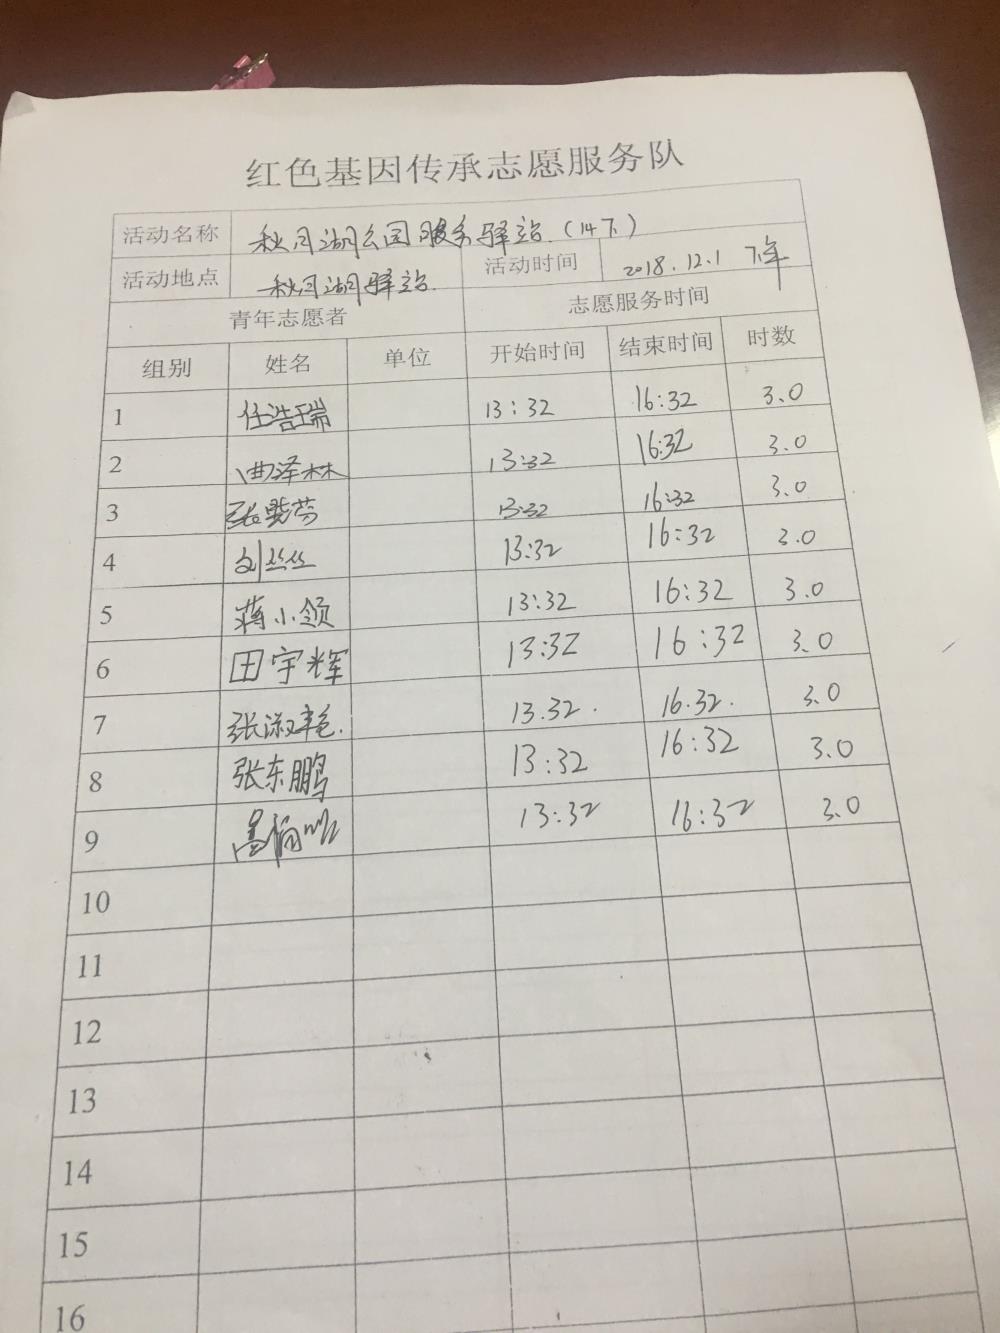 红色基因传承志愿服务队
活动名称 秋月湖公园服务驿站.(14下)
活动地点 秋月湖驿站. 活动时间 2018.12.1 下午
青年志愿者 志愿服务时间
组别 姓名 单位 开始时间 结束时间 时数
1 任浩瑞 13:32 16:32 3.0
2 曲泽林 13:32 16:32 3.0
3 张 13:32 16:32 3.0
4 刘丝丝 13:32 16:32 3.0
5 蒋小领 13:32 16:32 3.0
6 田宇辉 13:32 16:32 3.0
7 张淑艳. 13.32. 16.32. 3.0
8 张东鹏 13:32 16:32 3.0
9 13:32 16:32 3.0
10
11
12
13
14
15
16